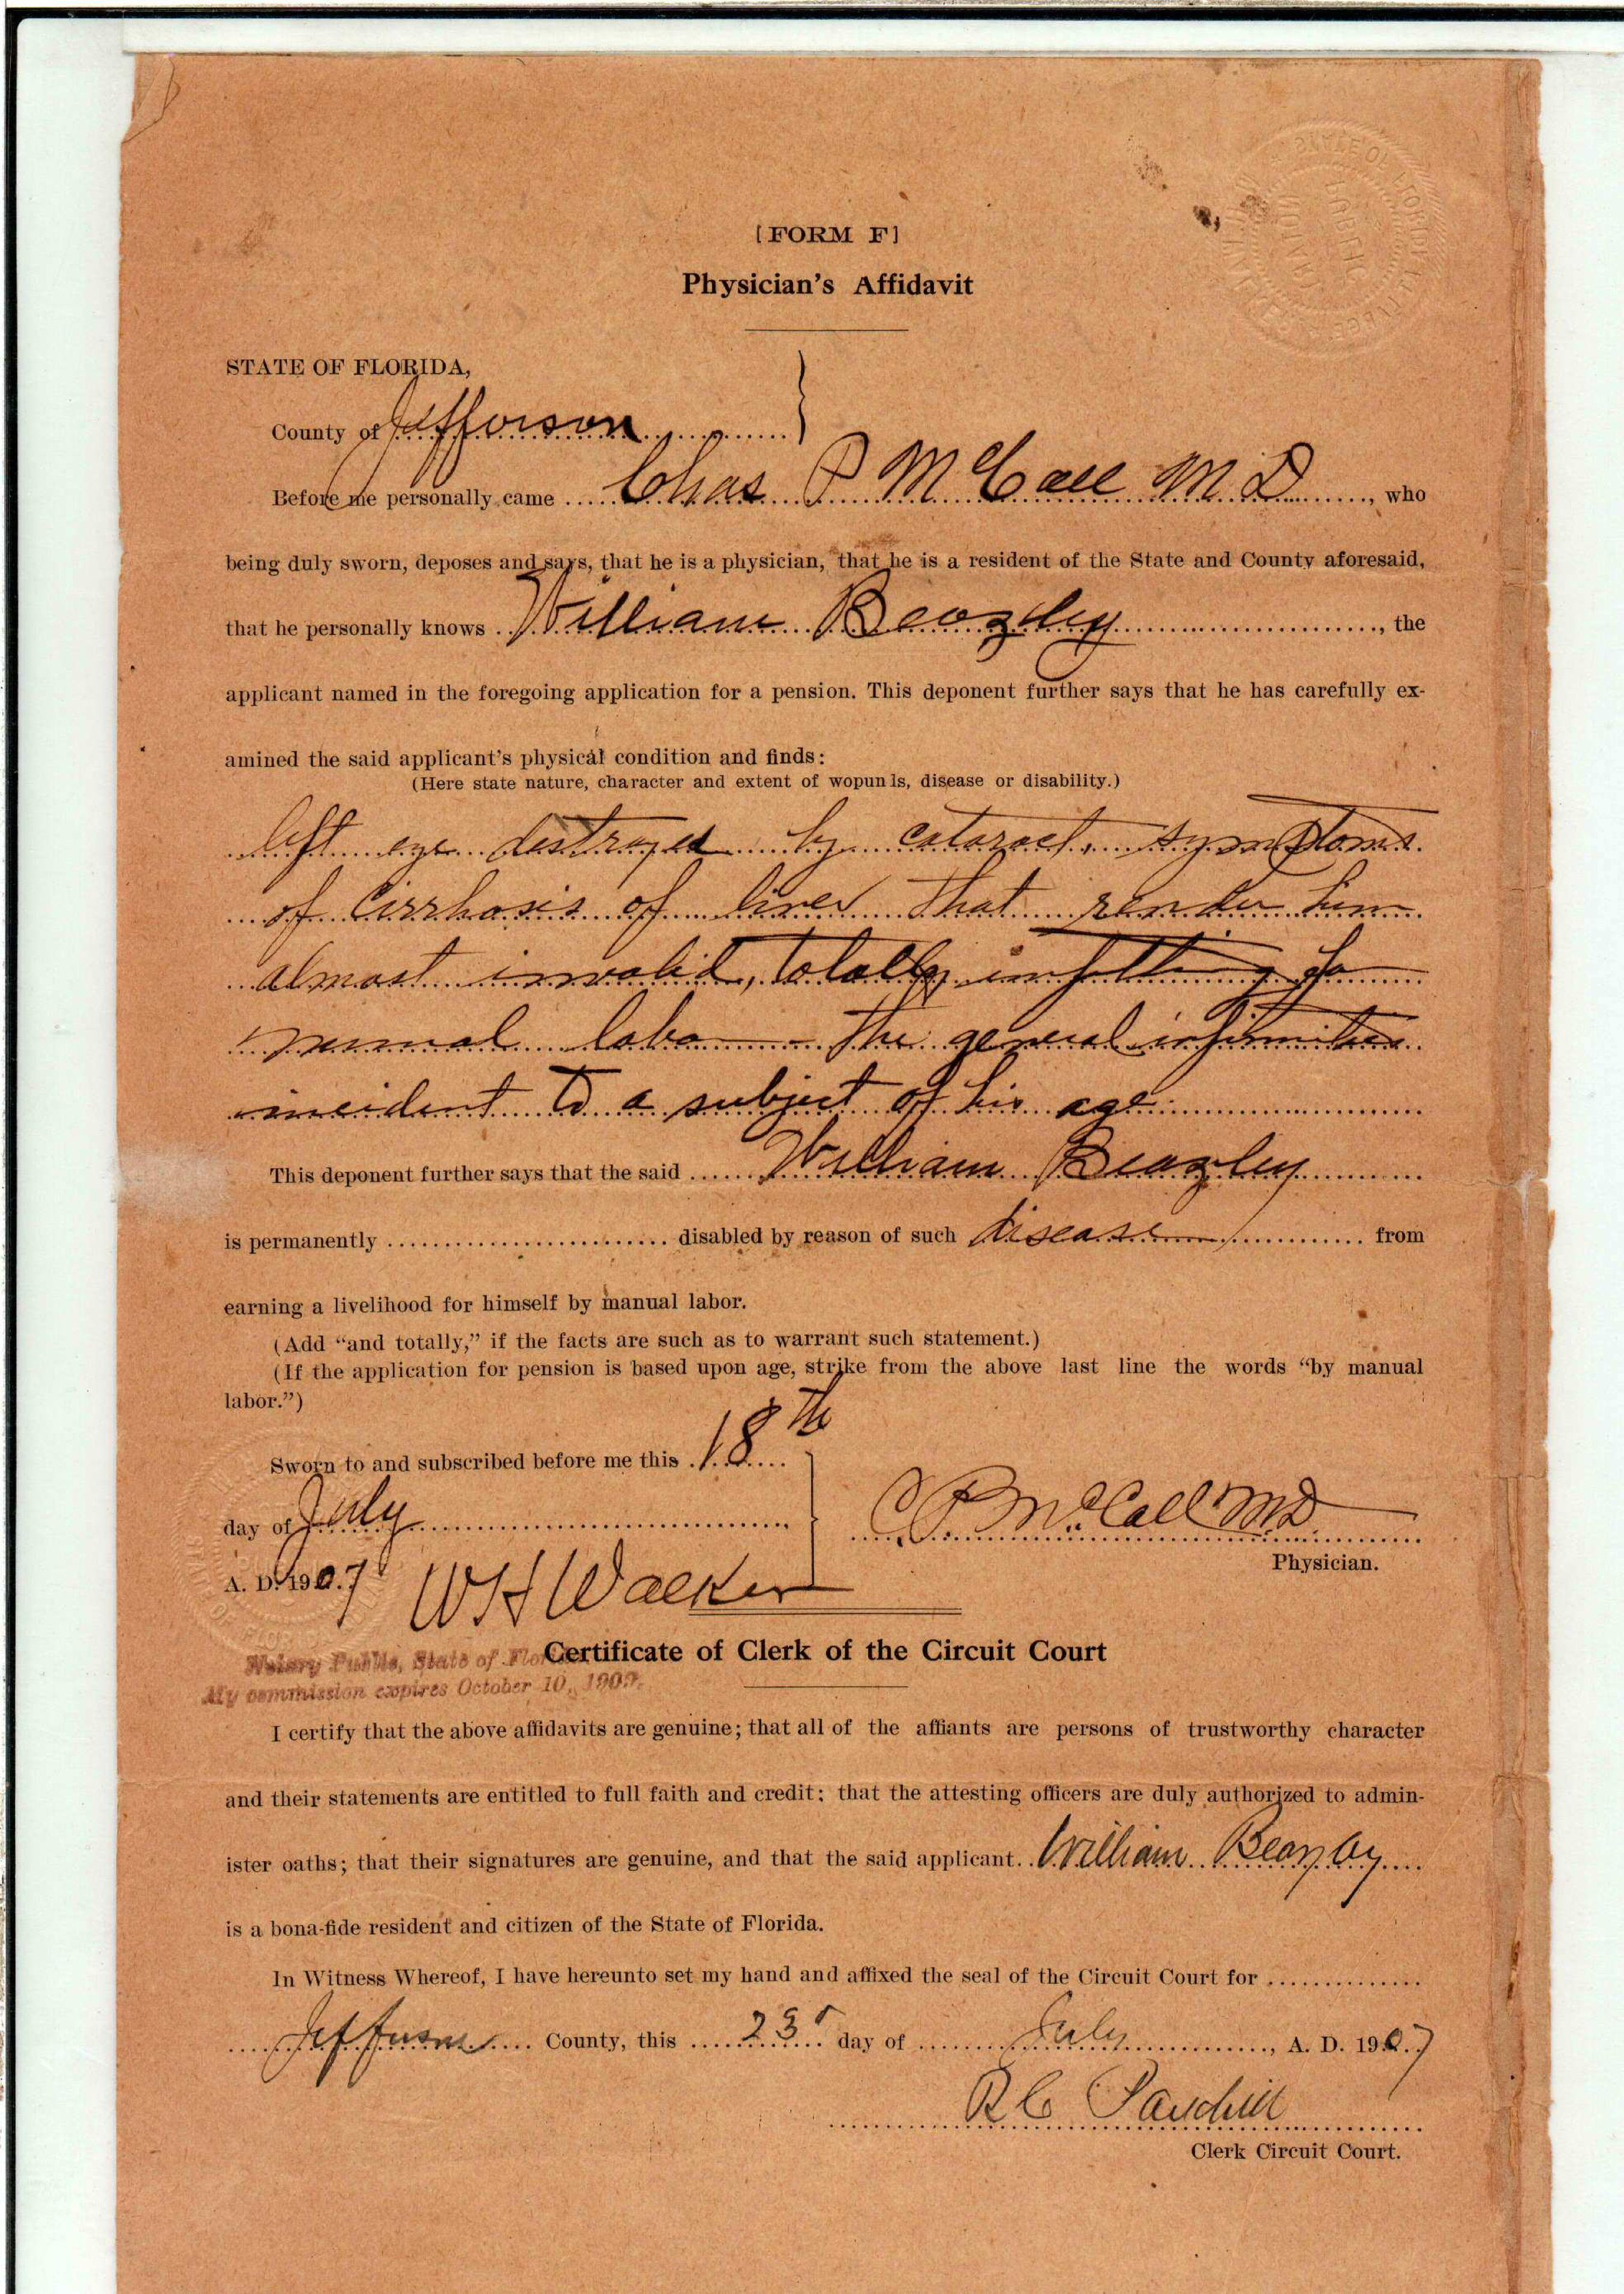 [FORM F]
Physician's Affidavit
STATE OF FLORIDA,
County of Jefferson
Before me personally came Chas P McCall M.D., who
being duly sworn, deposes and says, that he is a physician, that he is a resident of the State and County aforesaid,
that he personally knows William Beazley, the
applicant named in the foregoing application for a pension. This deponent further says that he has carefully ex-
amined the said applicant's physical condition and finds:
(Here state nature, character and extent of wopunls, disease or disability.)
left eye destroyed by cataract, symptoms
of Cirrhosis of liver that render him
almost invalid, totally unfitting for
manual labor - the general infirmities
incident to a subject of his age
This deponent further says that the said William Beazley
is permanently disabled by reason of such disease from
earning a livelihood for himself by manual labor.
(Add "and totally," if the facts are such as to warrant such statement.)
(If the application for pension is based upon age, strike from the above last line the words "by manual
labor.")
Sworn to and subscribed before me this 18th
day of July
C P McCall MD
Physician.
A. D. 1907
W H Walker
Certificate of Clerk of the Circuit Court
Notary Public, State of Florida.
My commission expires October 10, 1909.
I certify that the above affidavits are genuine; that all of the affiants are persons of trustworthy character
and their statements are entitled to full faith and credit; that the attesting officers are duly authorized to admin-
ister oaths; that their signatures are genuine, and that the said applicant William Beazley
is a bona-fide resident and citizen of the State of Florida.
In Witness Whereof, I have hereunto set my hand and affixed the seal of the Circuit Court for
Jefferson County, this 23 day of July, A. D. 1907
R C
Clerk Circuit Court.